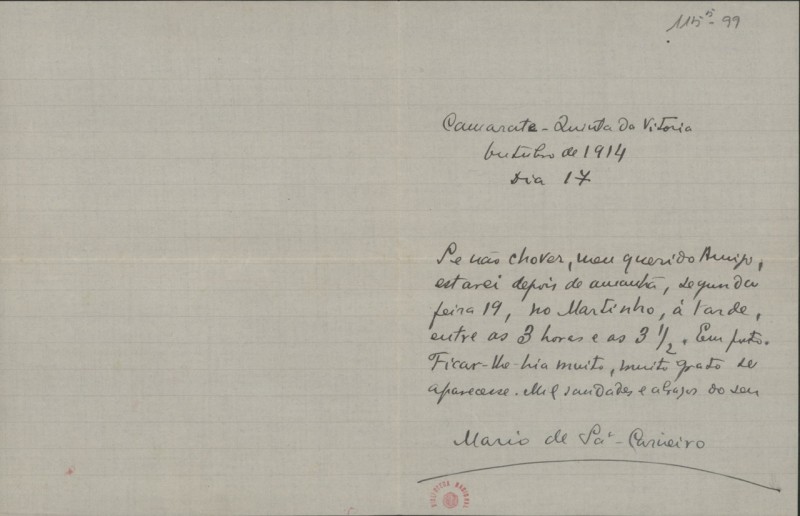 115⁵-99
Camarate - Quinta da Vitoria
Outubro de 1914
Dia 17
Se não chover, meu querido Amigo,
estarei depois de amanhã, segunda
feira 19, no Martinho, á tarde,
entre as 3 horas e as 3 1/2. Em ponto.
Ficar-lhe-hia muito, muito grato se
aparecesse. Mil saudades e abraços do seu
Mario de Sá-Carneiro
BIBLIOTECA NACIONAL